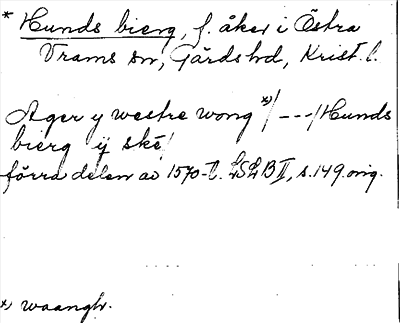 * Hunds bierg, f. åker i Östra
Vrams sn, Gärds hd, Krist. l.
Ager y westre wong *)/---/Hunds
bierg ÿ ské/
förra delen av 1570-t. LSLB II, s. 149. orig.
*) waangh.